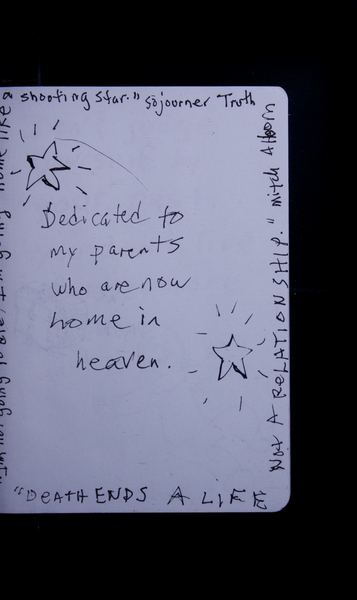 a shooting star." Sojourner Truth
Dedicated to
my parents
who are now
home in
heaven.
"DEATH ENDS A LIFE
NOT A RELATIONSHIP." mitch Albom
"I'm not going to die, I'm going home like